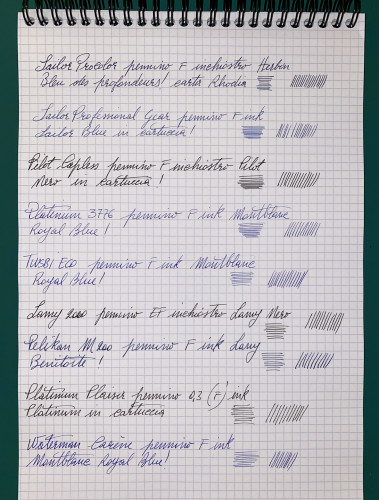 Sailor Procolor pennino F inchiostro Herbin
Bleu des profondeurs! carta Rhodia
Sailor Professional Gear pennino F ink
Sailor Blue in cartuccia!
Pilot Capless pennino F inchiostro Pilot
Nero in cartuccia!
Platinum 3776 pennino F ink Montblanc
Royal Blue!
TWSBI Eco pennino F ink Montblanc
Royal Blue!
Lamy 2000 pennino EF inchiostro Lamy Nero
Pelikan M200 pennino F ink Lamy
Benitoite!
Platinum Plaisir pennino 0,3 (F) ink
Platinum in cartuccia
Waterman Carène pennino F ink
Montblanc Royal Blue!